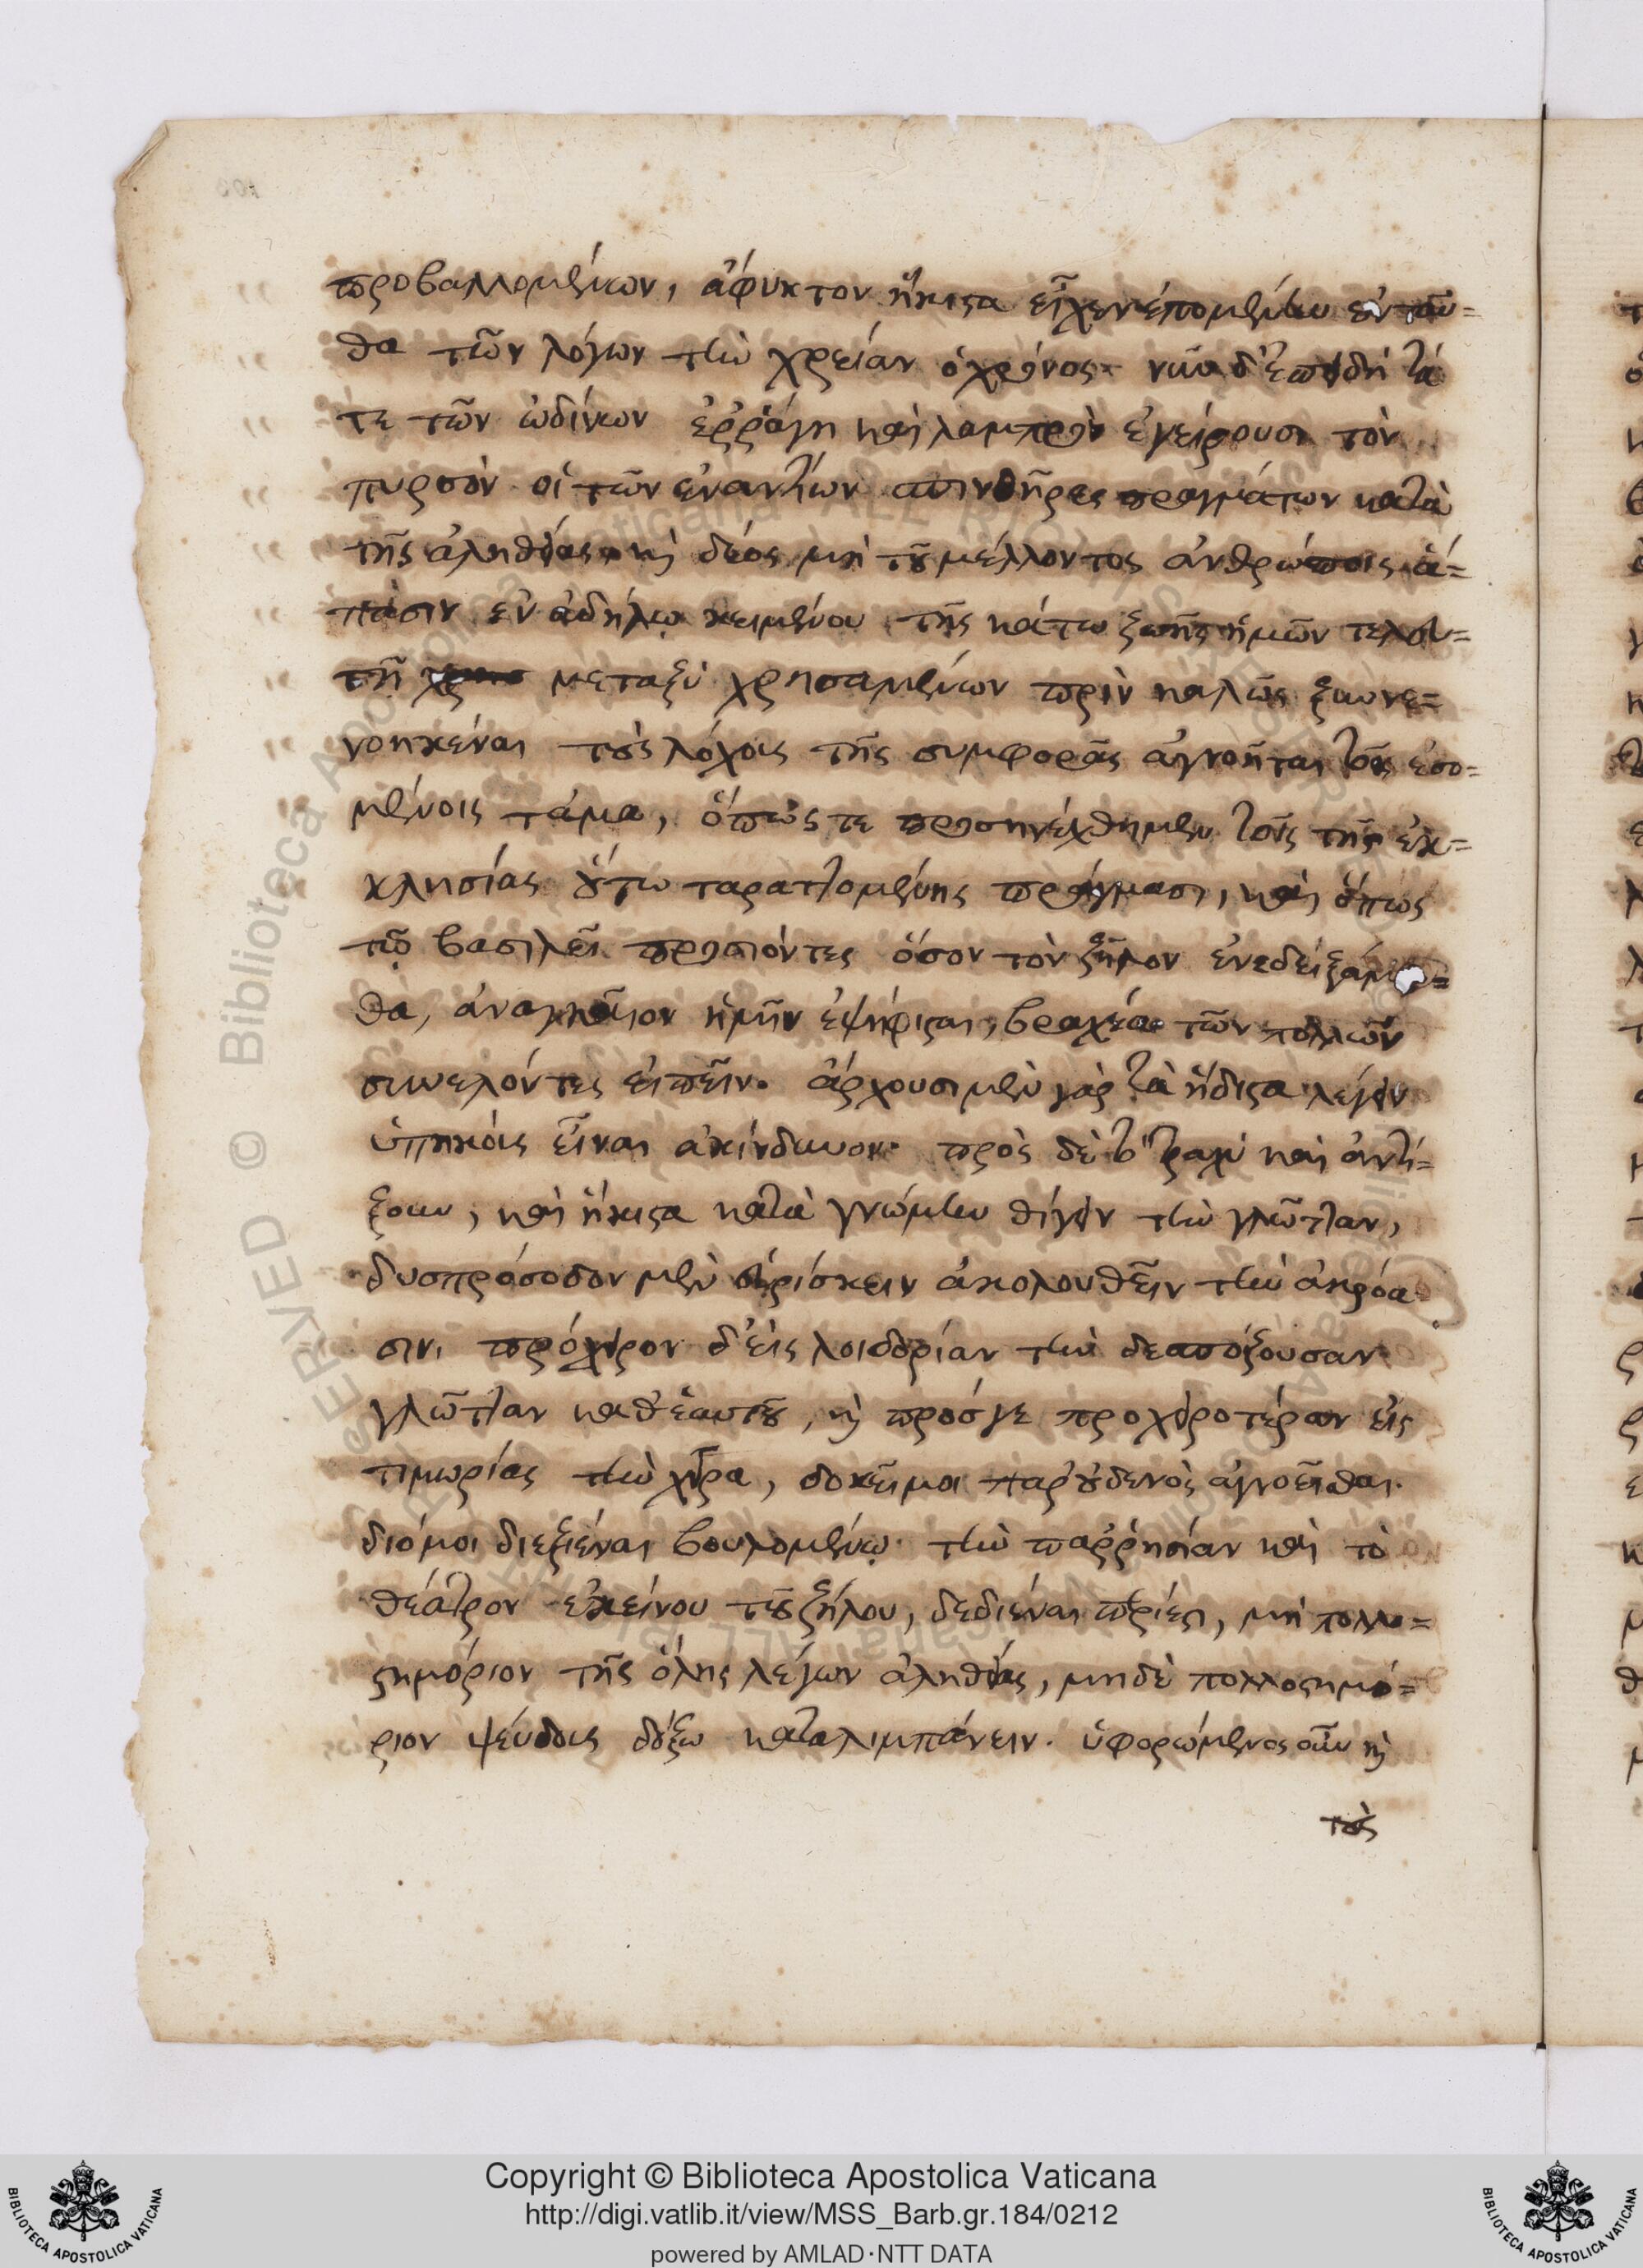 προβαλλομένων, ἄφυκτον ἥκιστα εἶχεν ἑπομένην ἐνταῦ=
θα τῶν λόγων τὴν χρείαν ὁ χρόνος· νῦν δ' ἐπειδὴ τά
τε τῶν ὠδίνων ἐῤῥάγη καὶ λαμπρὸν ἐγείρουσι τὸν
πυρσὸν οἱ τῶν ἐναντίων σπινθῆρες πραγμάτων κατὰ
τῆς ἀληθείας καὶ δέος μὴ τοῦ μέλλοντος ἀνθρώποις ἅ=
πασιν ἐν ἀδήλῳ κειμένου τῆς κάτω ζωῆς ἡμῶν τελευ=
τῇ μεταξὺ χρησαμένων πρὶν καλῶς ξυννε=
νοηκέναι τοὺς λόχους τῆς συμφορᾶς ἀγνοῆται τοῖς ἐσο=
μένοις τἀμὰ, ὅπως τε προσηνέχθημεν τοῖς τῆς ἐκ=
κλησίας οὕτω ταραττομένης πράγμασι, καὶ ὅπως
τῷ βασιλεῖ προσιόντες ὅσον τὸν ζῆλον ἐνεδειξάμε=
θα, ἀναγκαῖον ἡμῖν ἐψήφισται, βραχέα τῶν πολλῶν
συνελόντες εἰπεῖν. ἄρχουσι μὲν γὰρ τὰ ἥδιστα λέγειν
ὑπηκόοις εἶναι ἀκίνδυνον· πρὸς δὲ τραχὺ καὶ ἀντί=
ξουν, καὶ ἥκιστα κατὰ γνώμην θίγειν τὴν γλῶτταν,
δυσπρόσοδον μὲν εὑρίσκειν ἀκολουθεῖν τὴν ἀκρόα
σιν, πρόχειρον δ' εἰς λοιδορίαν τὴν δεσπόζουσαν
γλῶτταν καθ' ἑαυτοῦ, καὶ πρός γε προχειροτέραν εἰς
τιμωρίας τὴν χεῖρα, δοκεῖ μοι παρ' οὐδενὸς ἀγνοεῖσθαι.
διό μοι διεξιέναι βουλομένῳ τὴν παῤῥησίαν καὶ τὸ
θέατρον ἐκείνου τοῦ ζήλου, δεδιέναι περίεστι, μὴ πολλο=
στημόριον τῆς ὅλης λέγων ἀληθείας, μηδὲ πολλοστημό=
ριον ψεύδους δόξω καταλιμπάνειν. ὑφορώμενος οὖν καὶ
τοὺς
Copyright © Biblioteca Apostolica Vaticana
http://digi.vatlib.it/view/MSS_Barb.gr.184/0212
powered by AMLAD·NTT DATA